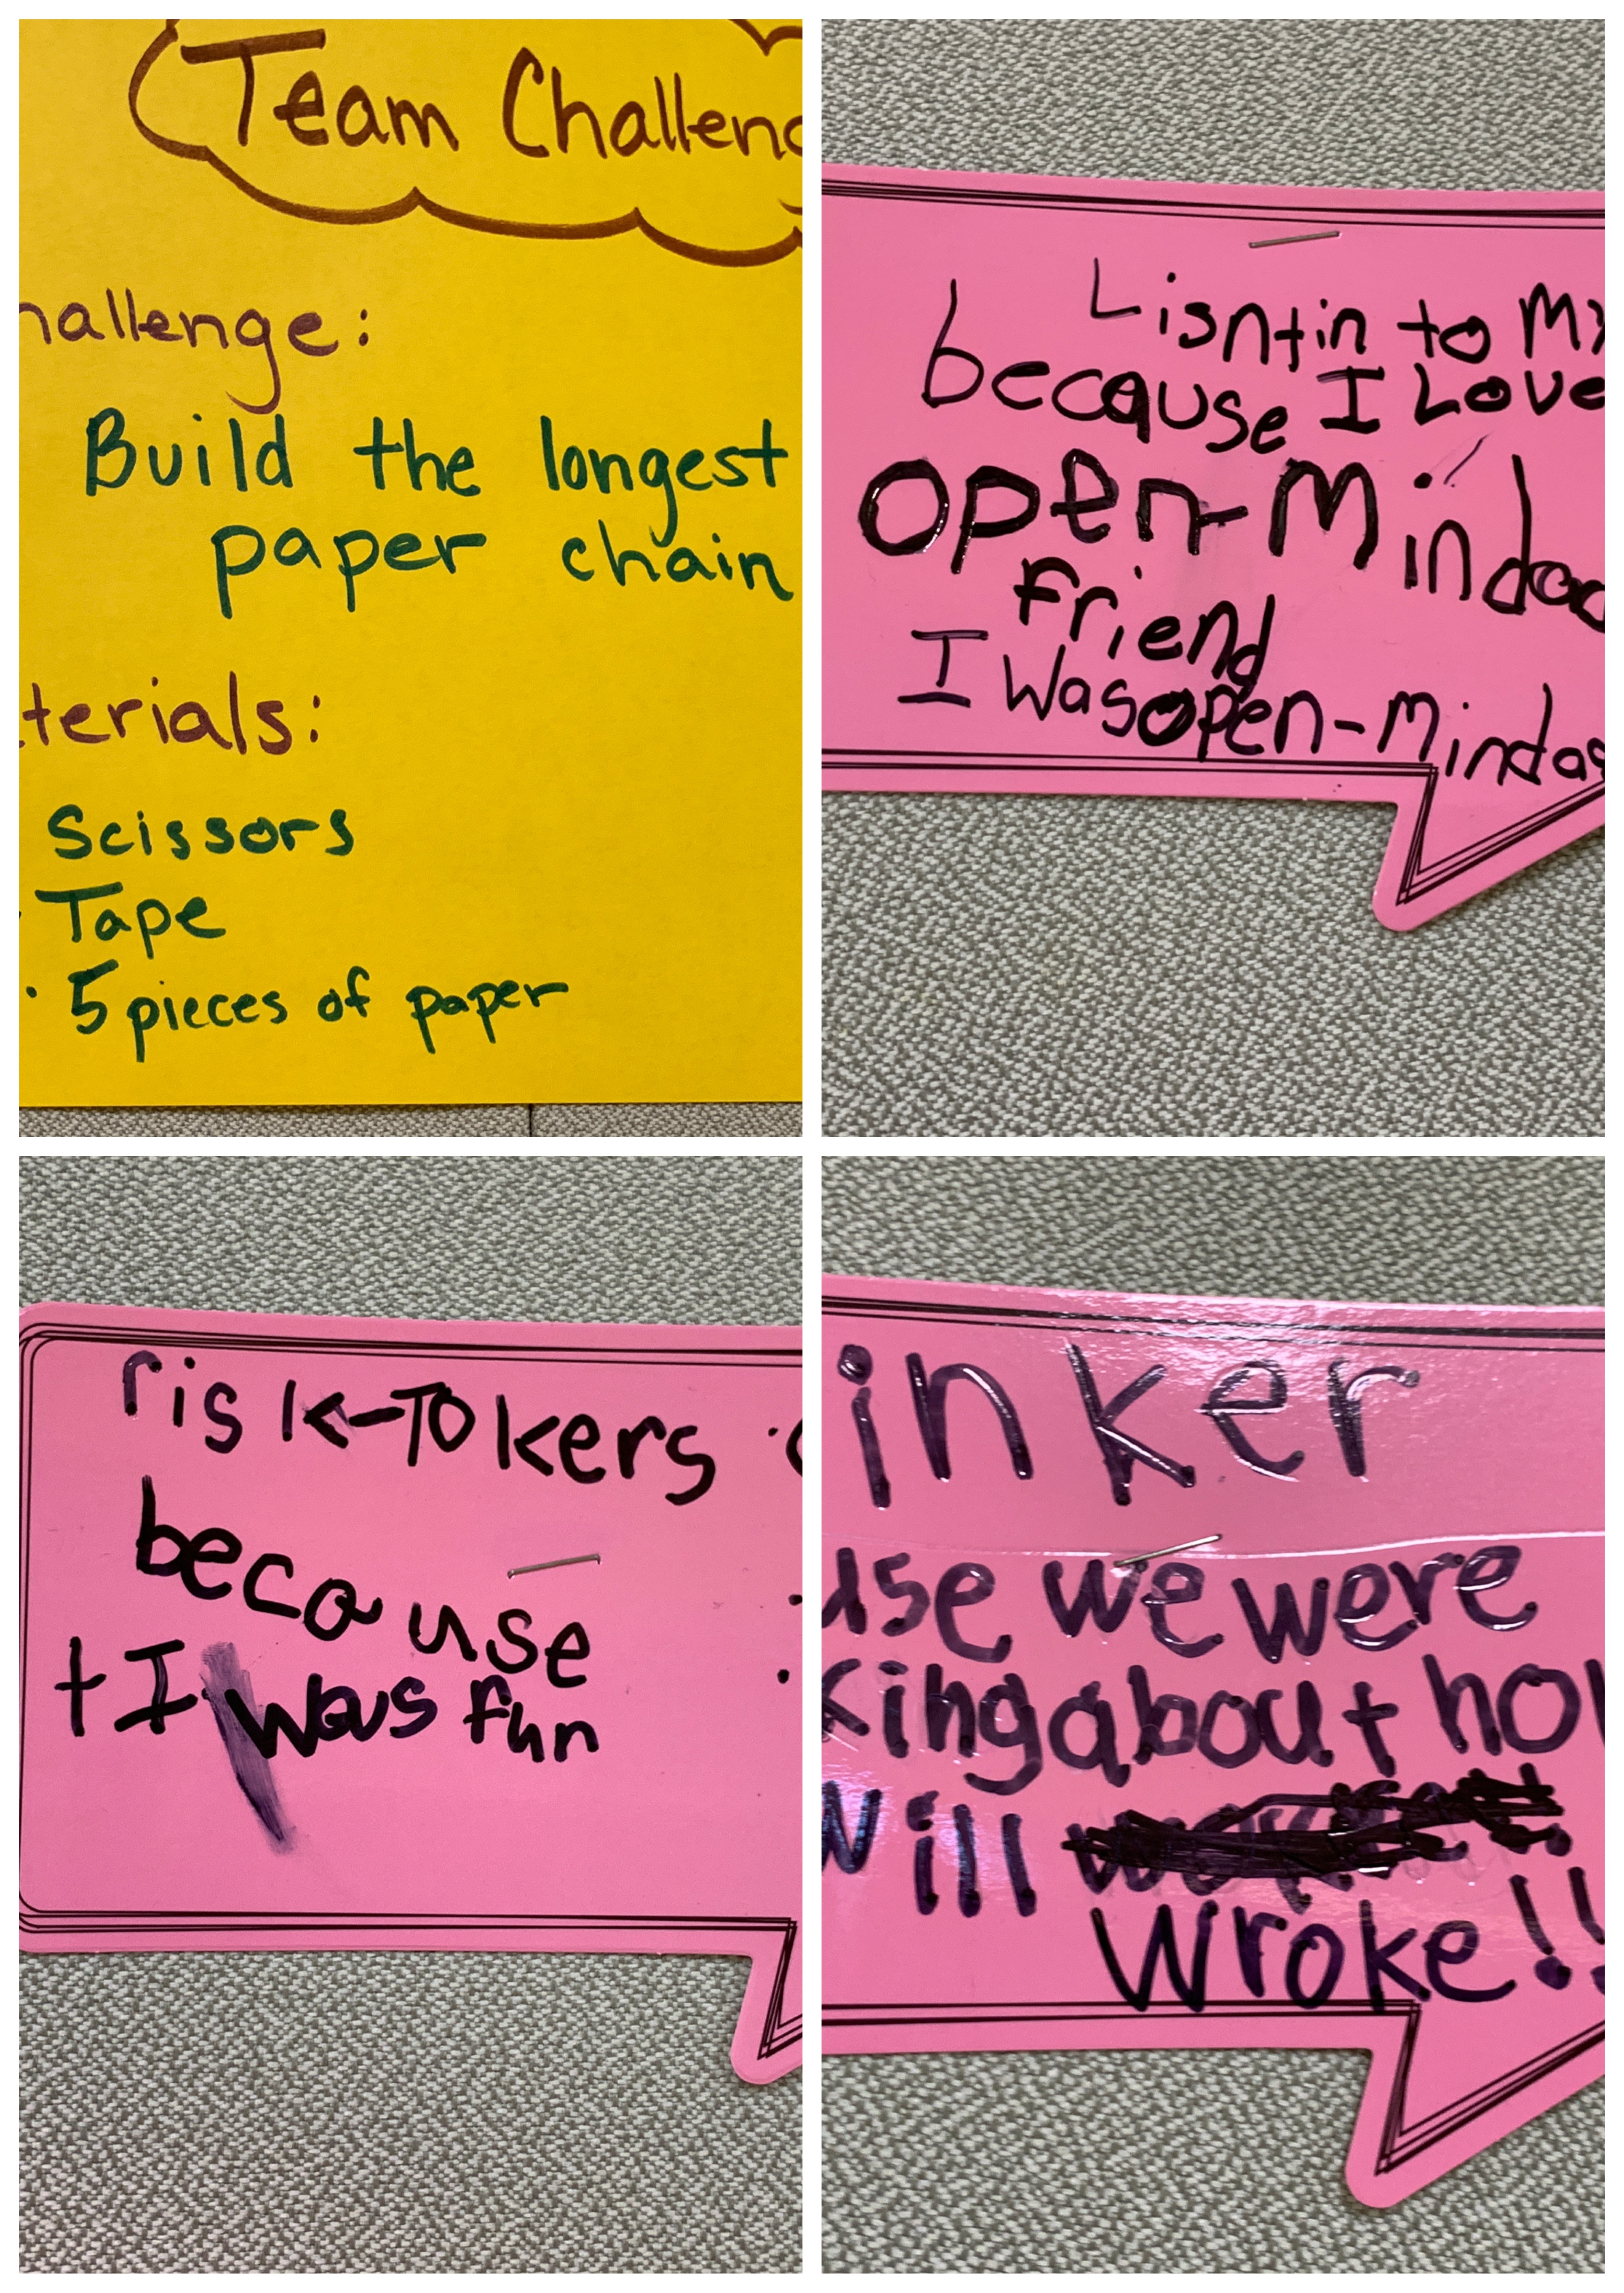 Team Challeng
hallenge:
Build the longest
paper chain
terials:
Scissors
Tape
· 5 pieces of paper
Lisntin to My
because I Love
open-Mindad
friend
I Was open-Mindas
risk-Tokers
because
tI was fun
inker
use we were
king about how
will
wroke!!